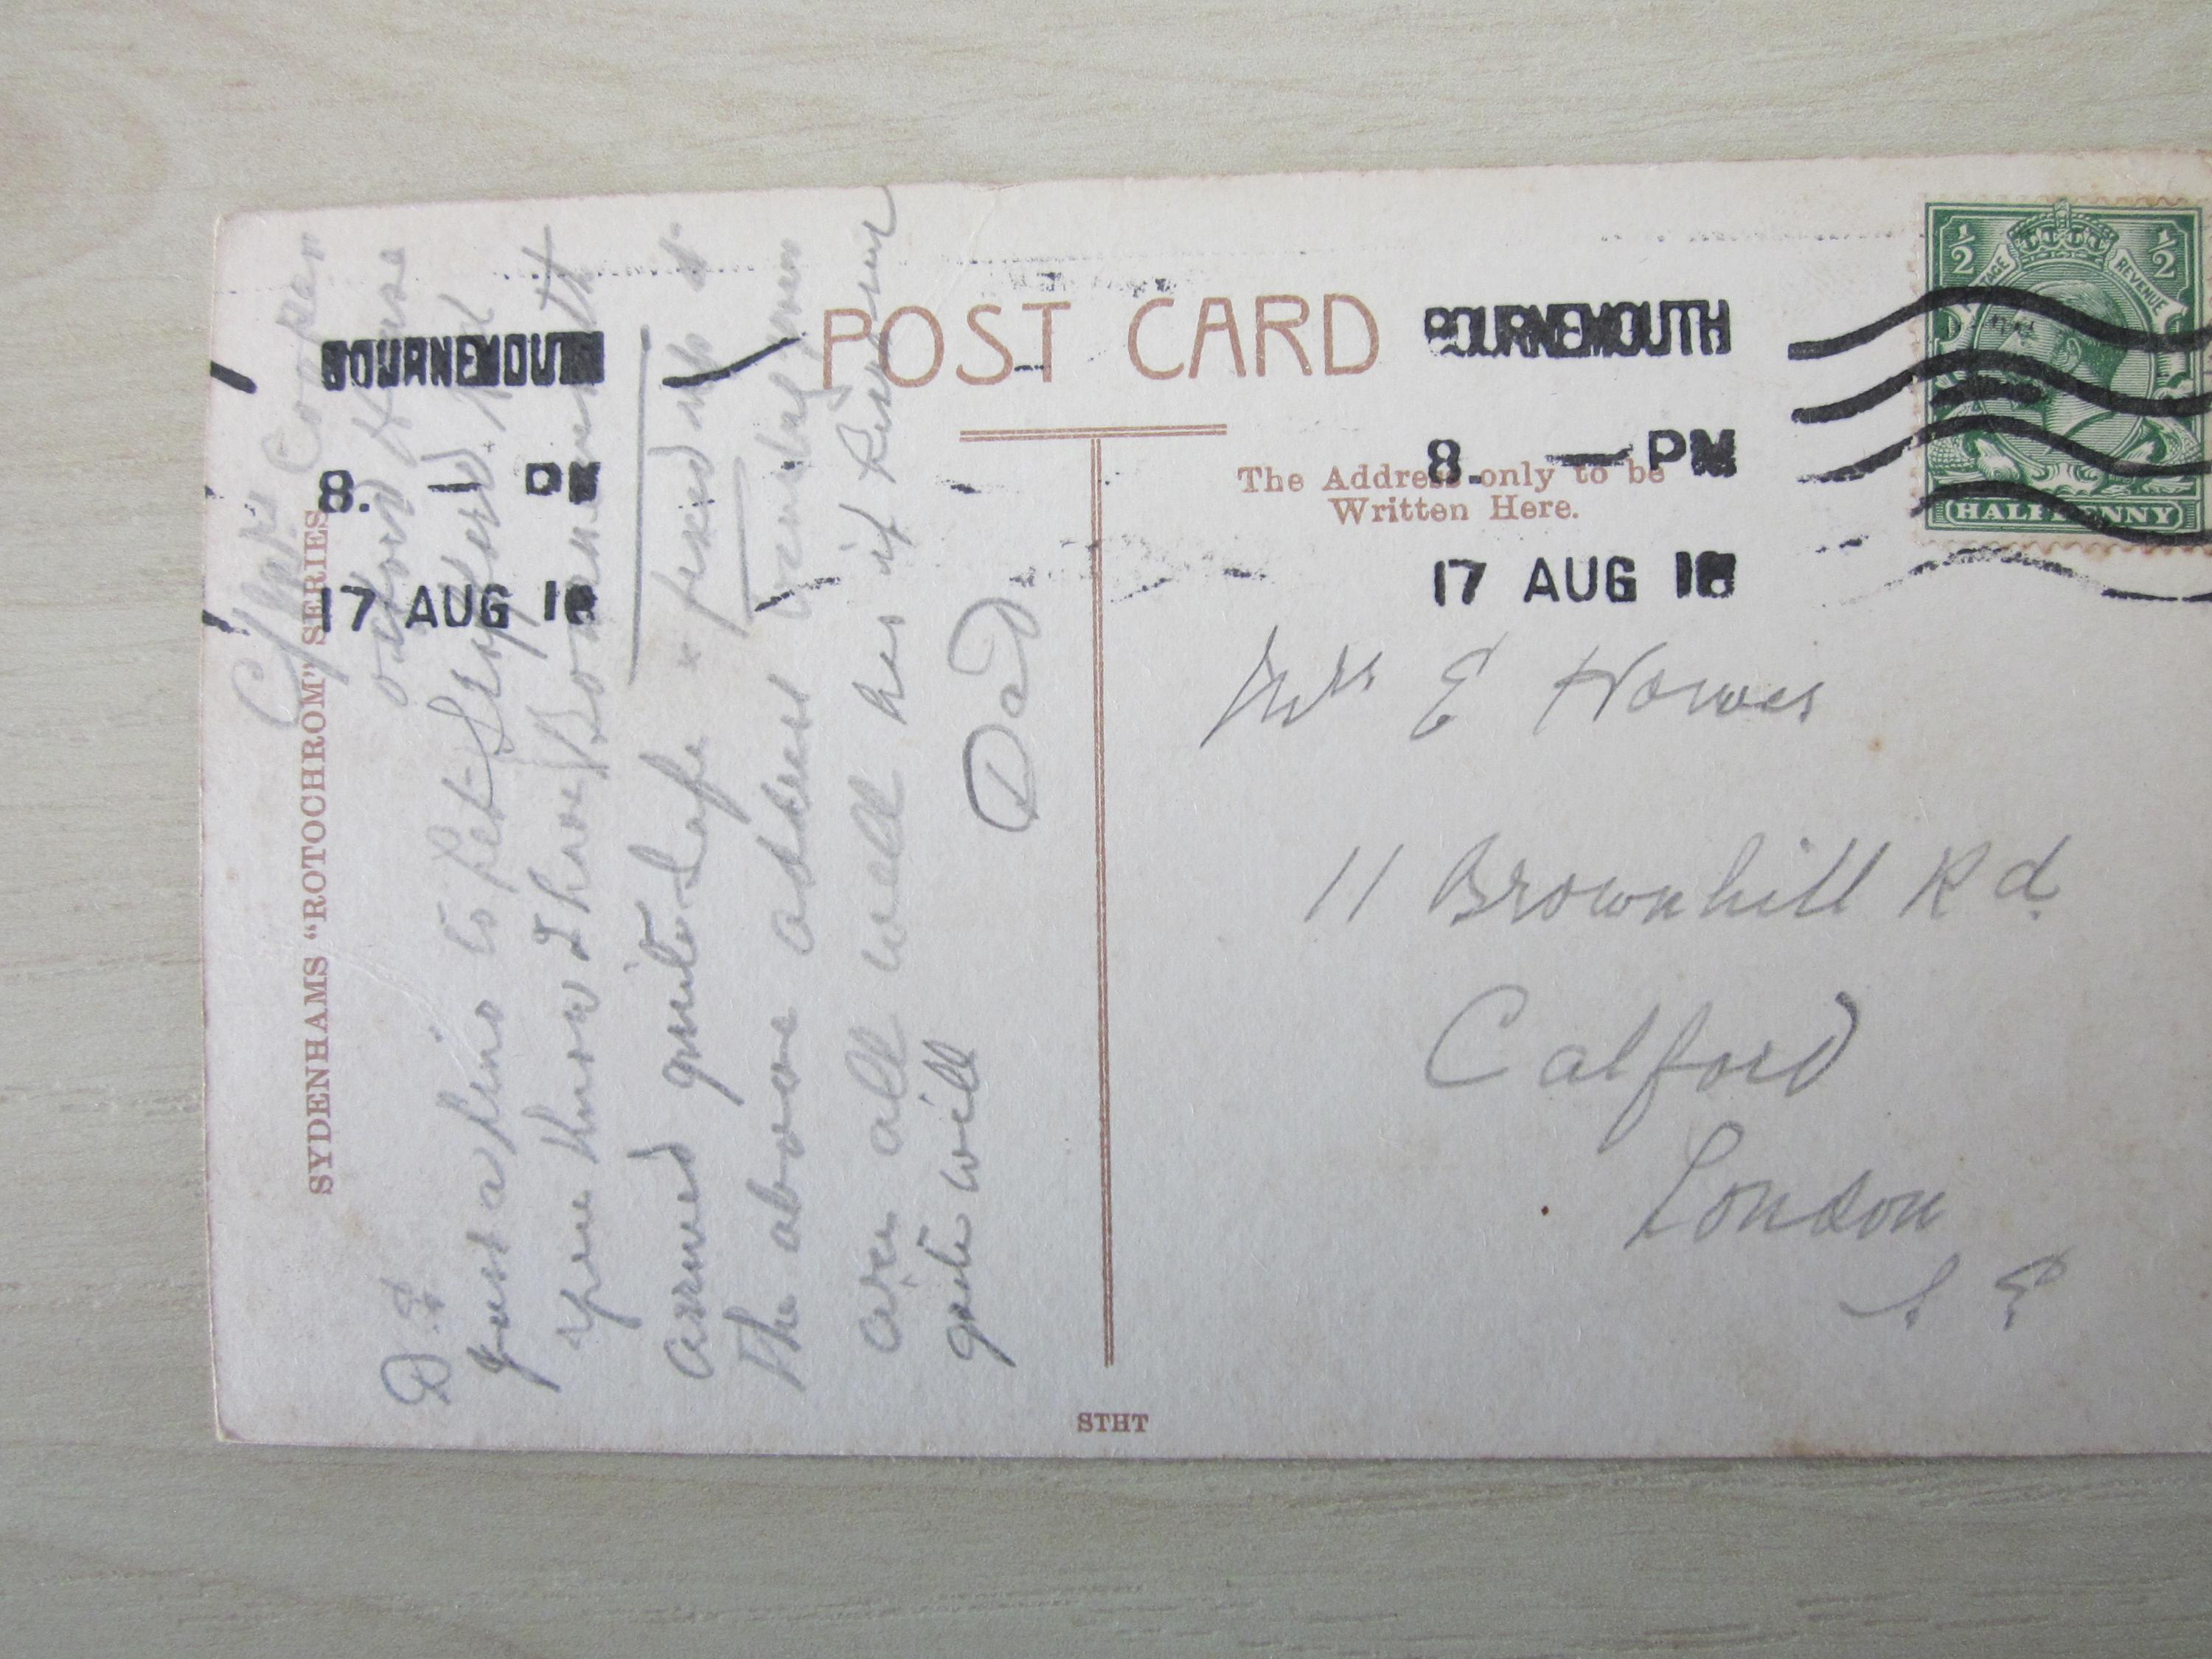 POST CARD
The Address only to be
Written Here.
SYDENHAMS "ROTOCHROM" SERIES.
STHT
BOURNEMOUTH
8. — PM
17 AUG 18
BOURNEMOUTH
8. — PM
17 AUG 18
½ ½
POSTAGE REVENUE
HALFPENNY
Mrs E Howes
11 Brownhill Rd.
Catford
London
S E
C/o Mrs Cooper
Oxford House
Rd
Bournemouth
D E
Just a line to let
you know I have
arrived quite safe & fixed up at
the above address
are all well has if
quite will
Dad